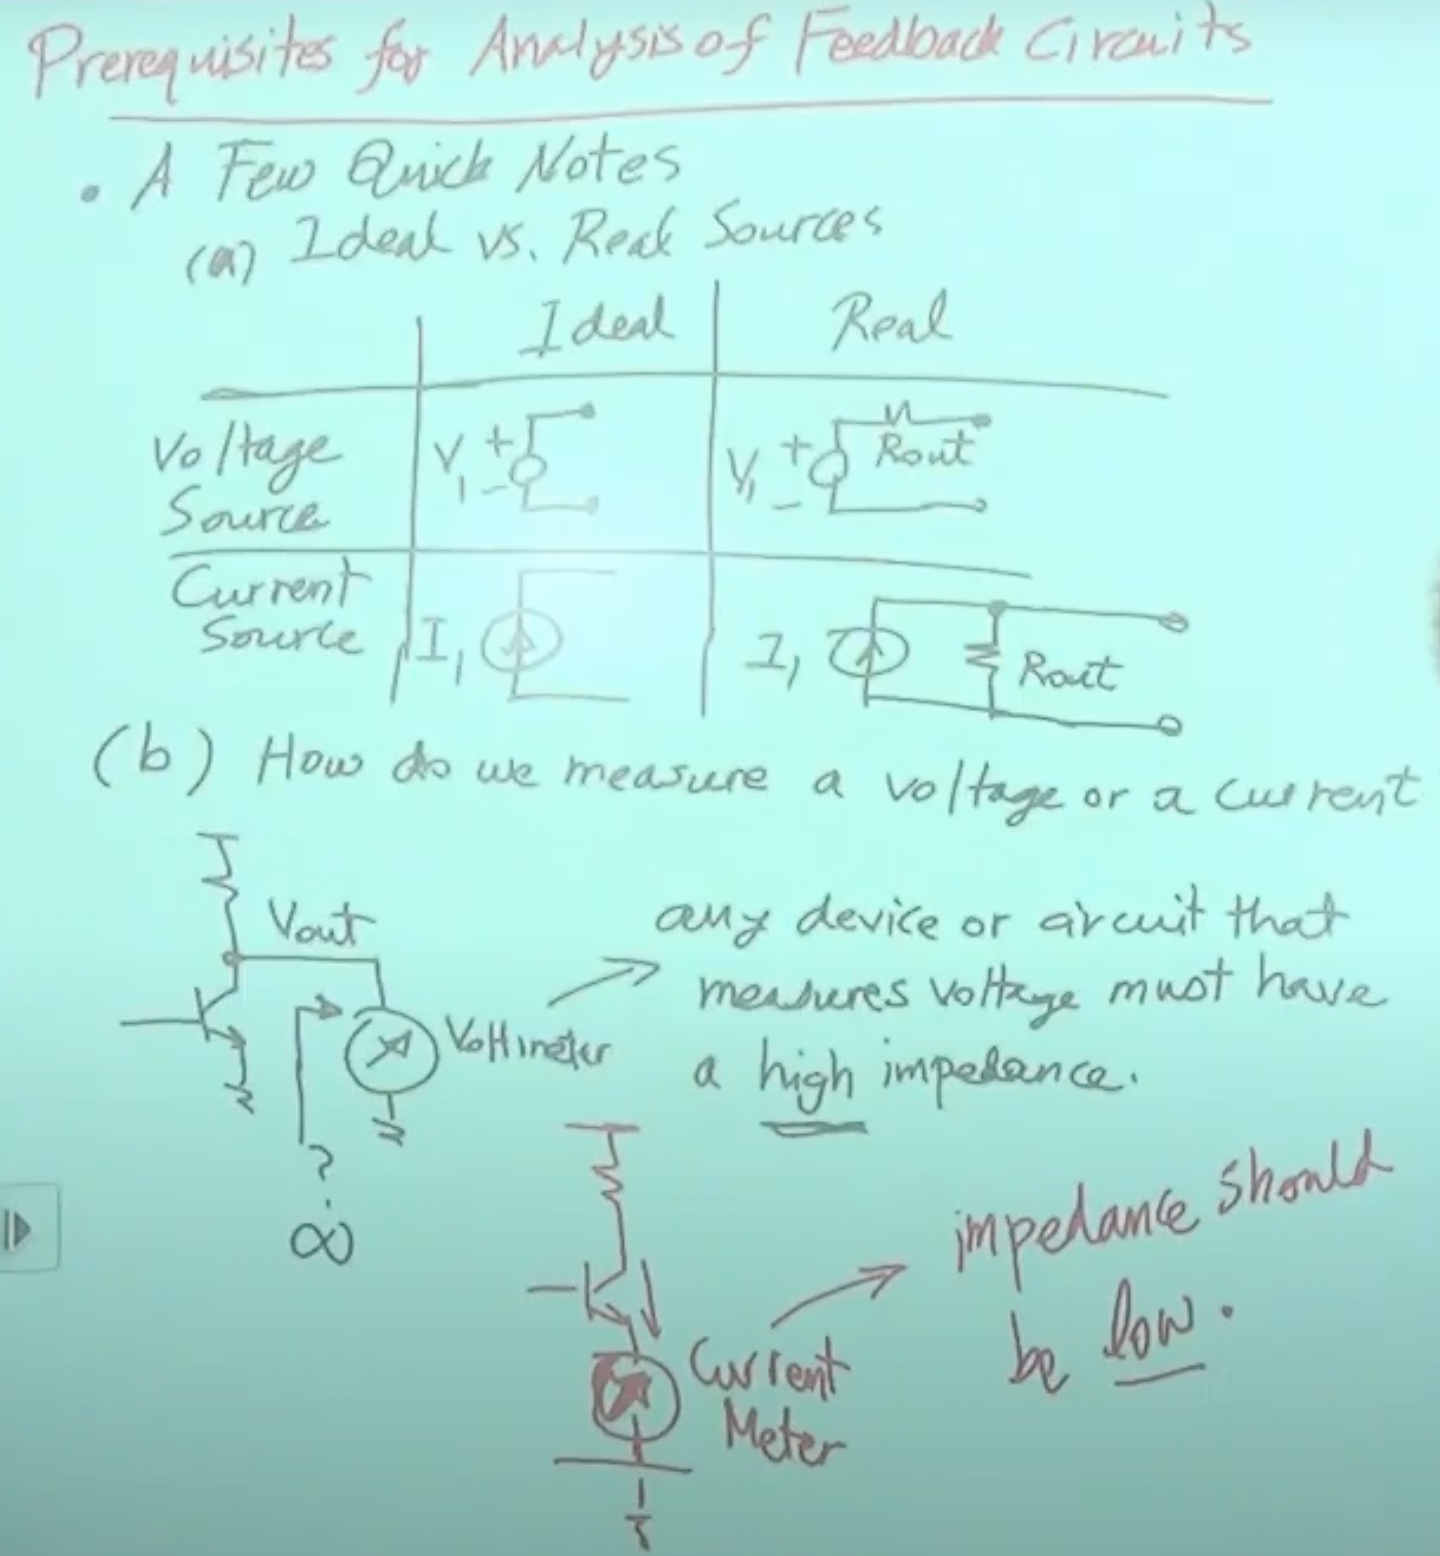 Prerequisites for Analysis of Feedback Circuits
• A Few Quick Notes
(a) Ideal vs. Real Sources
Ideal
Real
Voltage
Source
V1 + -
V1 + -
Rout
Current
Source
I1
I1
Rout
(b) How do we measure a voltage or a current
Vout
Voltmeter
?
∞
any device or circuit that
measures voltage must have
a high impedance.
Current
Meter
impedance should
be low.